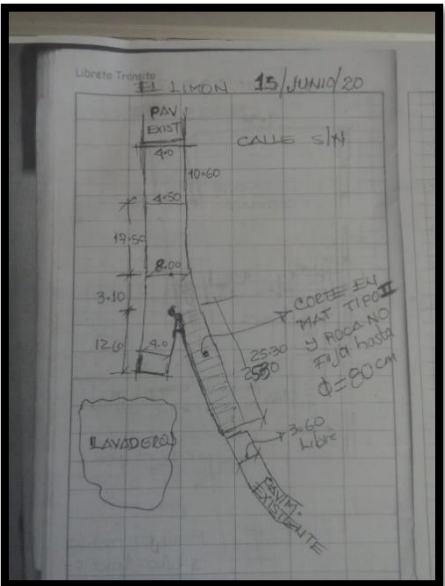 Libreta Tránsito
EL LIMON 15/JUNIO/20
PAV
EXIST
CALLE S/N
4.0
10.60
4.50
17.50
8.00
3.10
CORTE EN
MAT TIPO II
Y ROCA NO
FIJA hasta
Φ=80cm
12.60
4.0
25.30
3.60
Libre
LAVADERO
PAVIM.
EXISTENTE